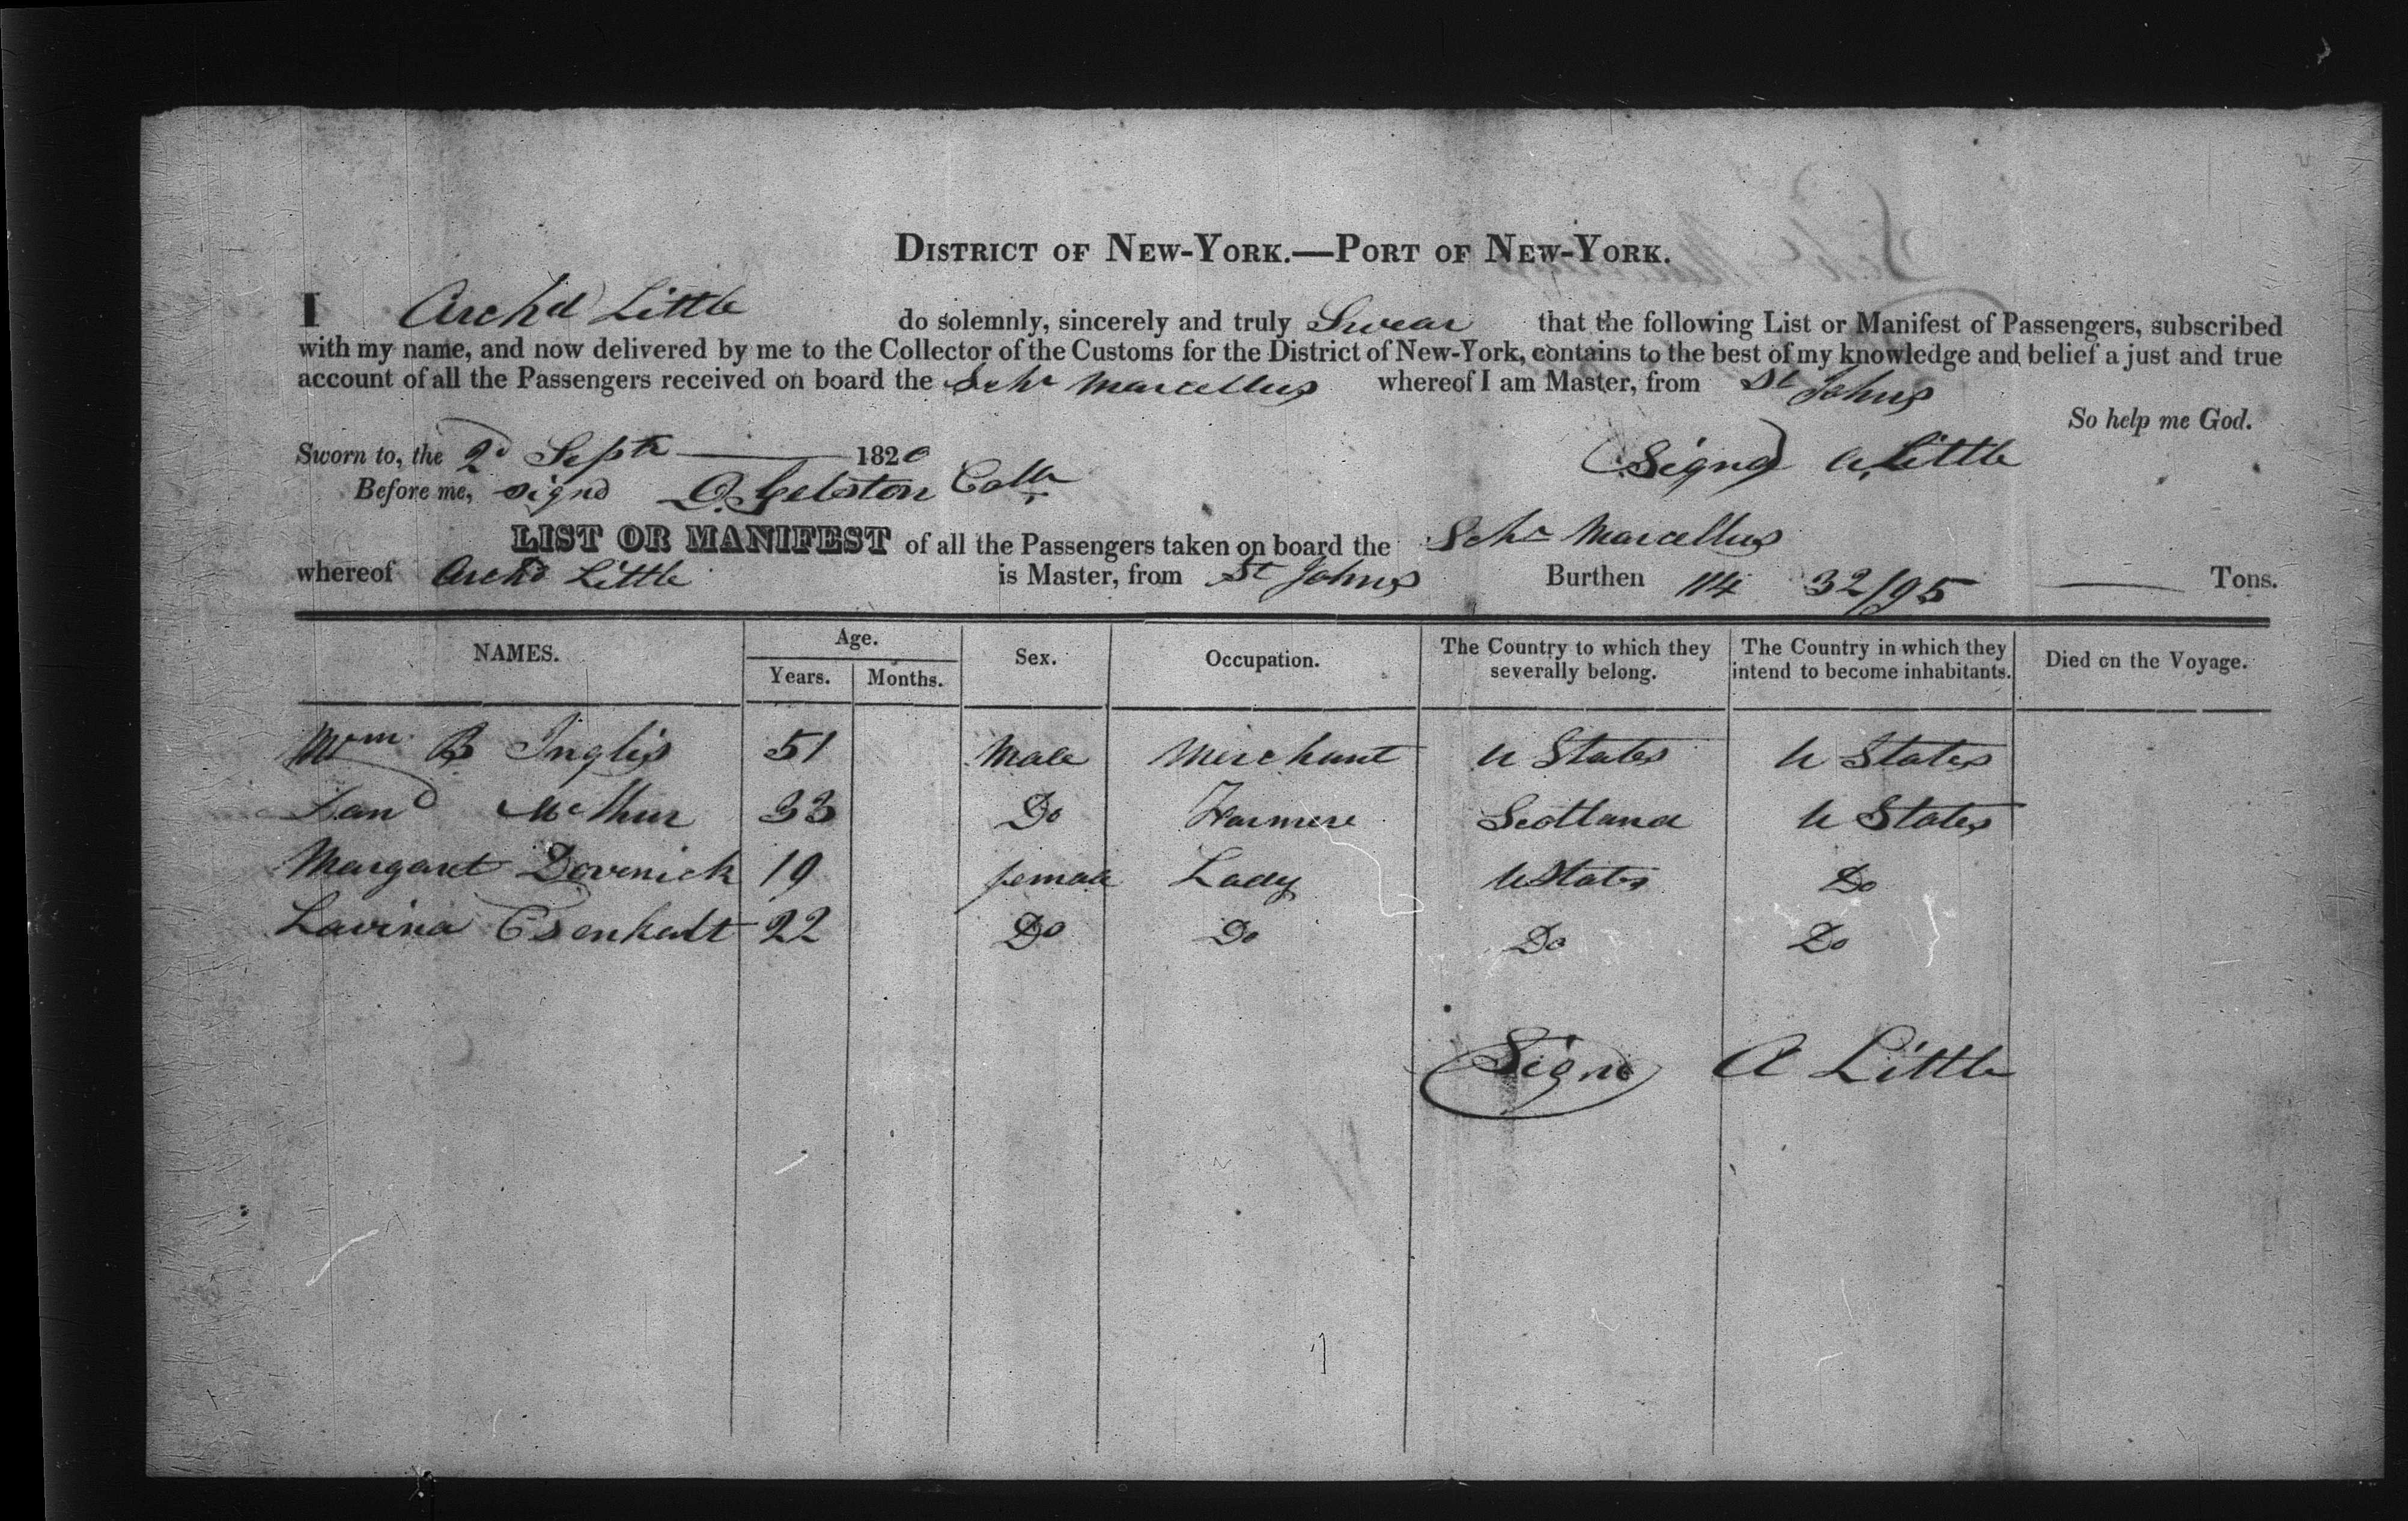 DISTRICT OF NEW-YORK.—PORT OF NEW-YORK.
I Archd Little do solemnly, sincerely and truly Swear that the following List or Manifest of Passengers, subscribed
with my name, and now delivered by me to the Collector of the Customs for the District of New-York, contains to the best of my knowledge and belief a just and true
account of all the Passengers received on board the Schr Marcellus whereof I am Master, from St Johns
So help me God.
Sworn to, the 2d Septr 1820 (Signd) A. Little
Before me, signd D. Gelston Collr
LIST OR MANIFEST of all the Passengers taken on board the Schr Marcellus
whereof Archd Little is Master, from St Johns Burthen 114 32/95 Tons.
NAMES. Age. Years. Months. Sex. Occupation. The Country to which they severally belong. The Country in which they intend to become inhabitants. Died on the Voyage.
Wm. B Inglis 51 Male Merchant U States U States
33 Do Scotland U States
Margaret 19 female Lady U States Do
Lavina 22 Do Do Do Do
Signd A Little